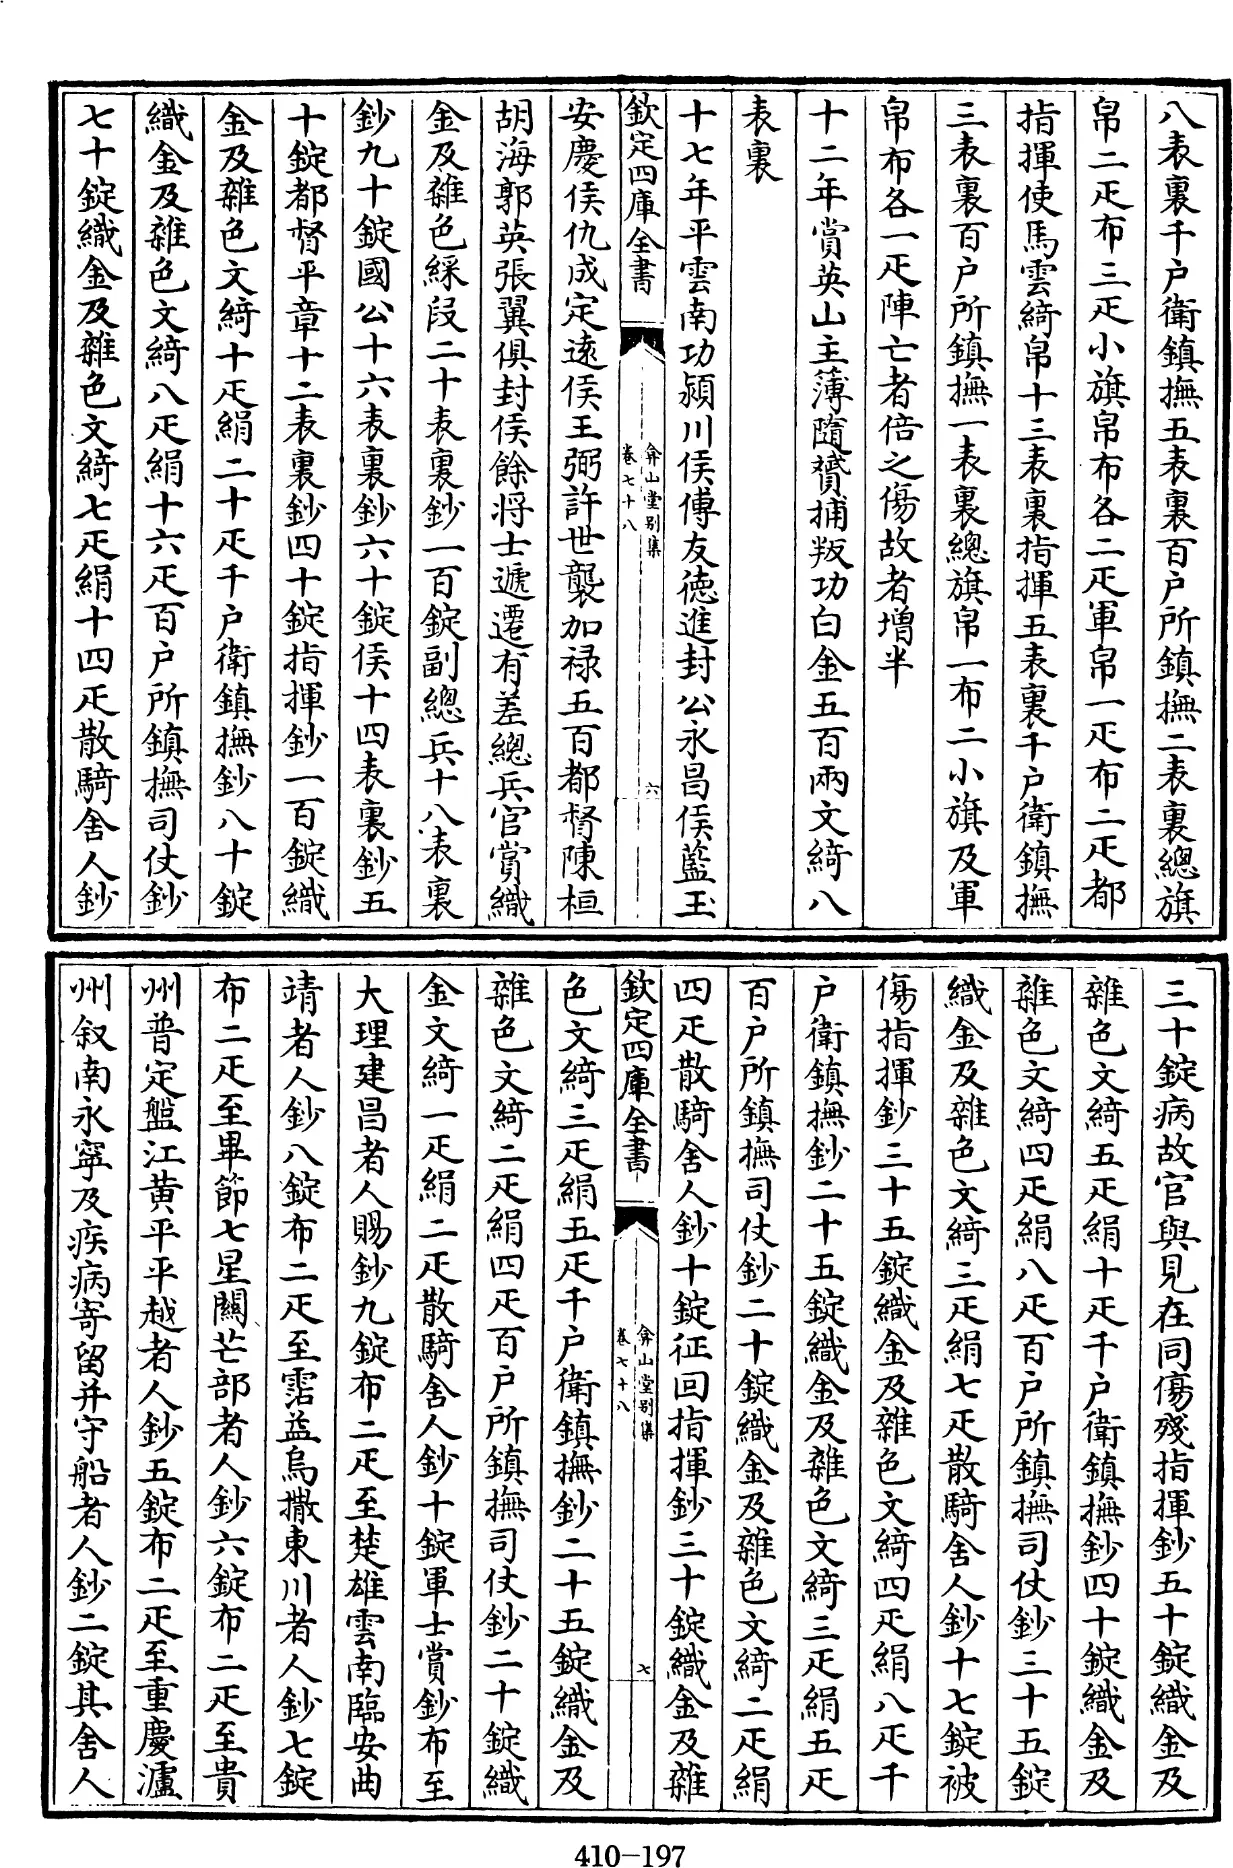 八表裏千户衛鎮撫五表裏百户所鎮撫二表裏總旗
帛二疋布三疋小旗帛布各二疋軍帛一疋布二疋都
指揮使馬雲綺帛十三表裏指揮五表裏千户衛鎮撫
三表裏百户所鎮撫一表裏總旗帛一布二小旗及軍
帛布各一疋陣亡者倍之傷故者増半
十二年賞英山主簿隨贇捕叛功白金五百兩文綺八
表裏
十七年平雲南功潁川侯傅友徳進封公永昌侯藍玉
欽定四庫全書
弇山堂别集
卷七十八
六
安慶侯仇成定遠侯王弼許世襲加禄五百都督陳桓
胡海郭英張翼俱封侯餘将士遞遷有差總兵官賞織
金及雜色綵段二十表裏鈔一百錠副總兵十八表裏
鈔九十錠國公十六表裏鈔六十錠侯十四表裏鈔五
十錠都督平章十二表裏鈔四十錠指揮鈔一百錠織
金及雜色文綺十疋絹二十疋千户衛鎮撫鈔八十錠
織金及雜色文綺八疋絹十六疋百户所鎮撫司仗鈔
七十錠織金及雜色文綺七疋絹十四疋散騎舍人鈔
三十錠病故官與見在同傷殘指揮鈔五十錠織金及
雜色文綺五疋絹十疋千户衛鎮撫鈔四十錠織金及
雜色文綺四疋絹八疋百户所鎮撫司仗鈔三十五錠
織金及雜色文綺三疋絹七疋散騎舍人鈔十七錠被
傷指揮鈔三十五錠織金及雜色文綺四疋絹八疋千
户衛鎮撫鈔二十五錠織金及雜色文綺三疋絹五疋
百户所鎮撫司仗鈔二十錠織金及雜色文綺二疋絹
四疋散騎舍人鈔十錠征回指揮鈔三十錠織金及雜
欽定四庫全書
弇山堂别集
卷七十八
七
色文綺三疋絹五疋千户衛鎮撫鈔二十五錠織金及
雜色文綺二疋絹四疋百户所鎮撫司仗鈔二十錠織
金文綺一疋絹二疋散騎舍人鈔十錠軍士賞鈔布至
大理建昌者人賜鈔九錠布二疋至楚雄雲南臨安曲
靖者人鈔八錠布二疋至霑益烏撒東川者人鈔七錠
布二疋至畢節七星關芒部者人鈔六錠布二疋至貴
州普定盤江黄平平越者人鈔五錠布二疋至重慶瀘
州叙南永寧及疾病寄留并守船者人鈔二錠其舍人
410-197